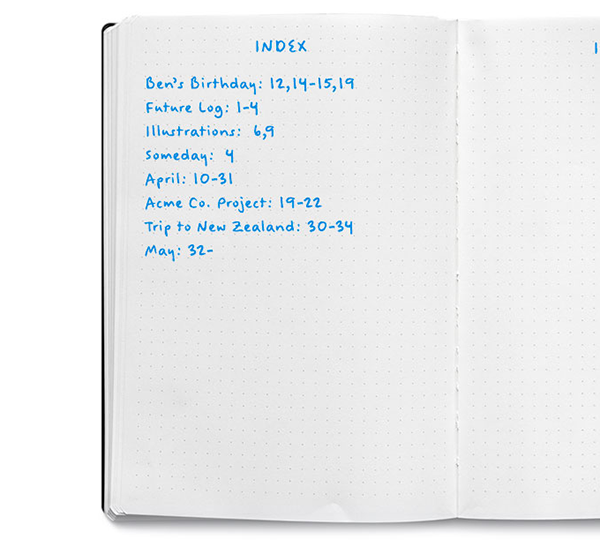 INDEX
Ben's Birthday: 12,14-15,19
Future Log: 1-4
Illustrations: 6,9
Someday: 4
April: 10-31
Acme Co. Project: 19-22
Trip to New Zealand: 30-34
May: 32-